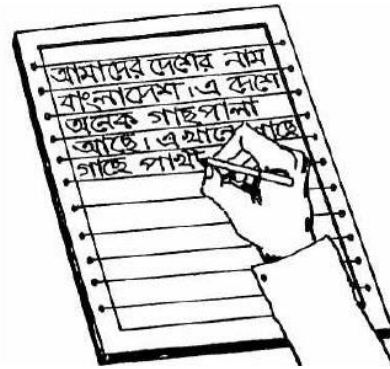 আমাদের দেশের নাম
বাংলাদেশ । এ দেশে
অনেক গাছপালা
আছে । এখানে গাছে
গাছে পাখি